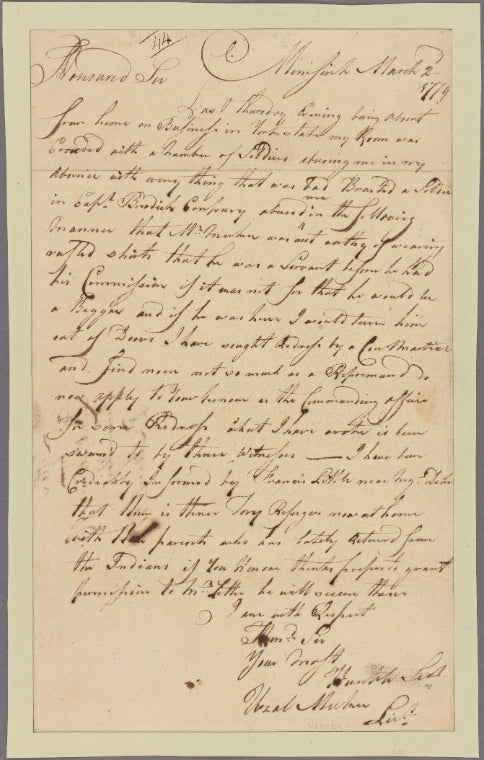 44
Minisink March 2d
1779
Honoured Sir
Last thursday Evening being absent
from home on Business in York state my Room was
Crouded with a Number of Soldiers abuseing me in my
Absence with every thing that was bad Brasted a Soldier
in Capt. Brodick Company abused me in the following
Manner that Mr. Meeker was not worthy of wearing
rafled shirts that he was a Servant before he had
his Commission if it was not for that he would be
a Beggar and if he was here I would turn him
out of Doers I have sought Redress by a Cou Martial
and find none not so much as a Repremand do
now apply to Your honour as the Commanding officer
for some Redress what I have wrote is been
sweared to by three Witnesses — I have been
Credickbly Informed by Francis Little near
that there is three Tory Refugees now at home
with their parents who has lately Retured from
the Indians if Your Honour thinks proper to grant
permission to Mr. Little he will secure them
I am with Respect
Hond. Sir
Your most
Humble Sert
Uzal Meeker
Liet.